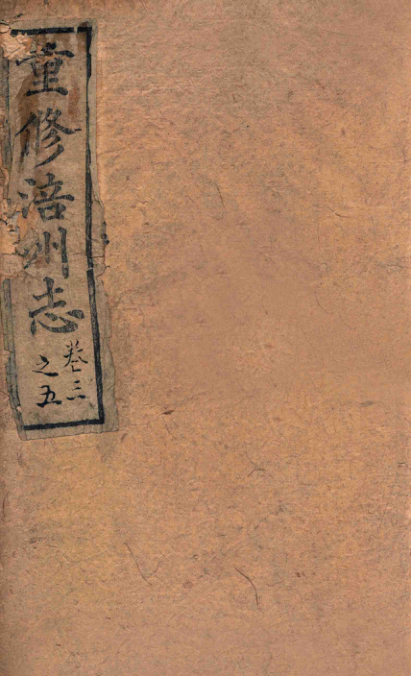 重修涪州志
卷三
之五